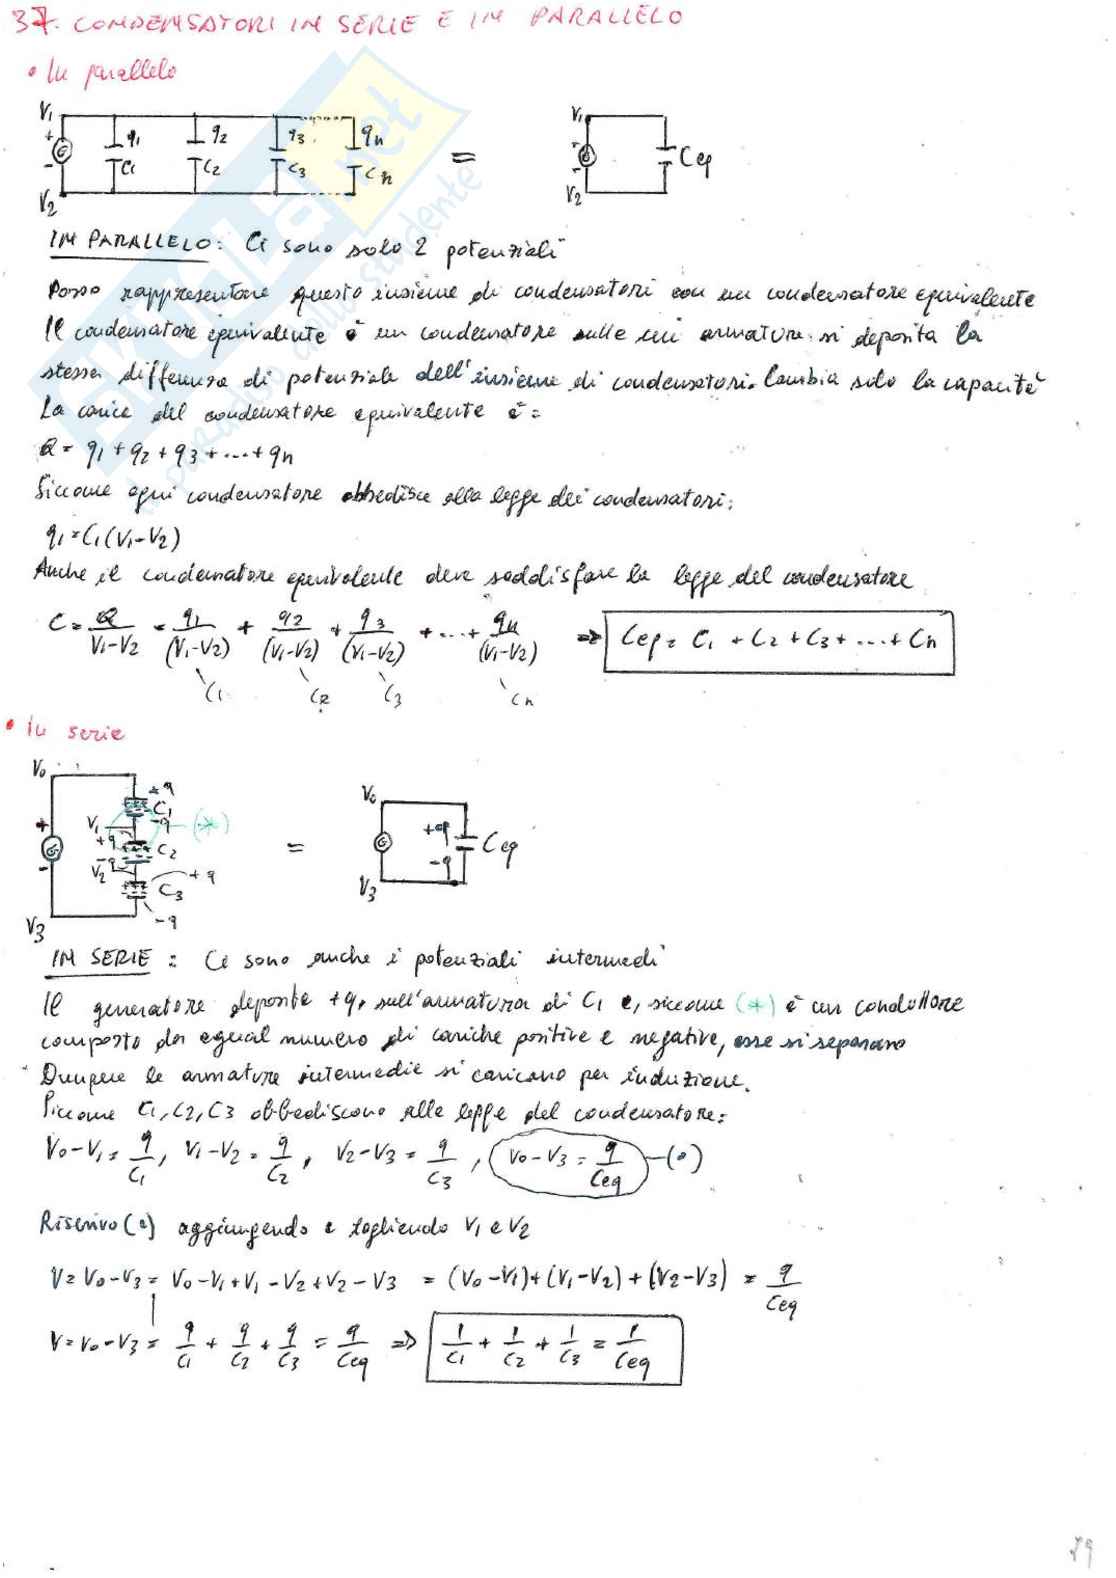 37. CONDENSATORI IN SERIE E IN PARALLELO
• In parallelo
V1 + G - V2 q1 C1 q2 C2 q3 C3 qn Cn = V1 + G - V2 Ceq
IN PARALLELO: Ci sono solo 2 potenziali
Posso rappresentare questo insieme di condensatori con un condensatore equivalente
Il condensatore equivalente è un condensatore sulle cui armature si deposita la
stessa differenza di potenziale dell'insieme di condensatori. Cambia solo la capacità
La carica del condensatore equivalente è:
Q = q1 + q2 + q3 + ... + qn
Siccome ogni condensatore obbedisce alla legge dei condensatori:
q1 = C1 (V1-V2)
Anche il condensatore equivalente deve soddisfare la legge del condensatore
C = Q/(V1-V2) = q1/(V1-V2) + q2/(V1-V2) + q3/(V1-V2) + ... + qn/(V1-V2) => Ceq = C1 + C2 + C3 + ... + Cn
C1 C2 C3 Cn
• In serie
V0 + G - V3 V1 V2 +q C1 -q (*) +q C2 -q +q C3 -q = V0 G V3 +q -q Ceq
IN SERIE: Ci sono anche i potenziali intermedi
Il generatore deposita +q, sull'armatura di C1 e, siccome (*) è un conduttore
composto da egual numero di cariche positive e negative, esse si separano
Dunque le armature intermedie si caricano per induzione.
Siccome C1, C2, C3 obbediscono alla legge del condensatore:
V0-V1 = q/C1, V1-V2 = q/C2, V2-V3 = q/C3, V0-V3 = q/Ceq (•)
Riscrivo (•) aggiungendo e togliendo V1 e V2
V = V0-V3 = V0-V1+V1-V2+V2-V3 = (V0-V1)+(V1-V2)+(V2-V3) = q/Ceq
V = V0-V3 = q/C1 + q/C2 + q/C3 = q/Ceq => 1/C1 + 1/C2 + 1/C3 = 1/Ceq
SKUOLA.net